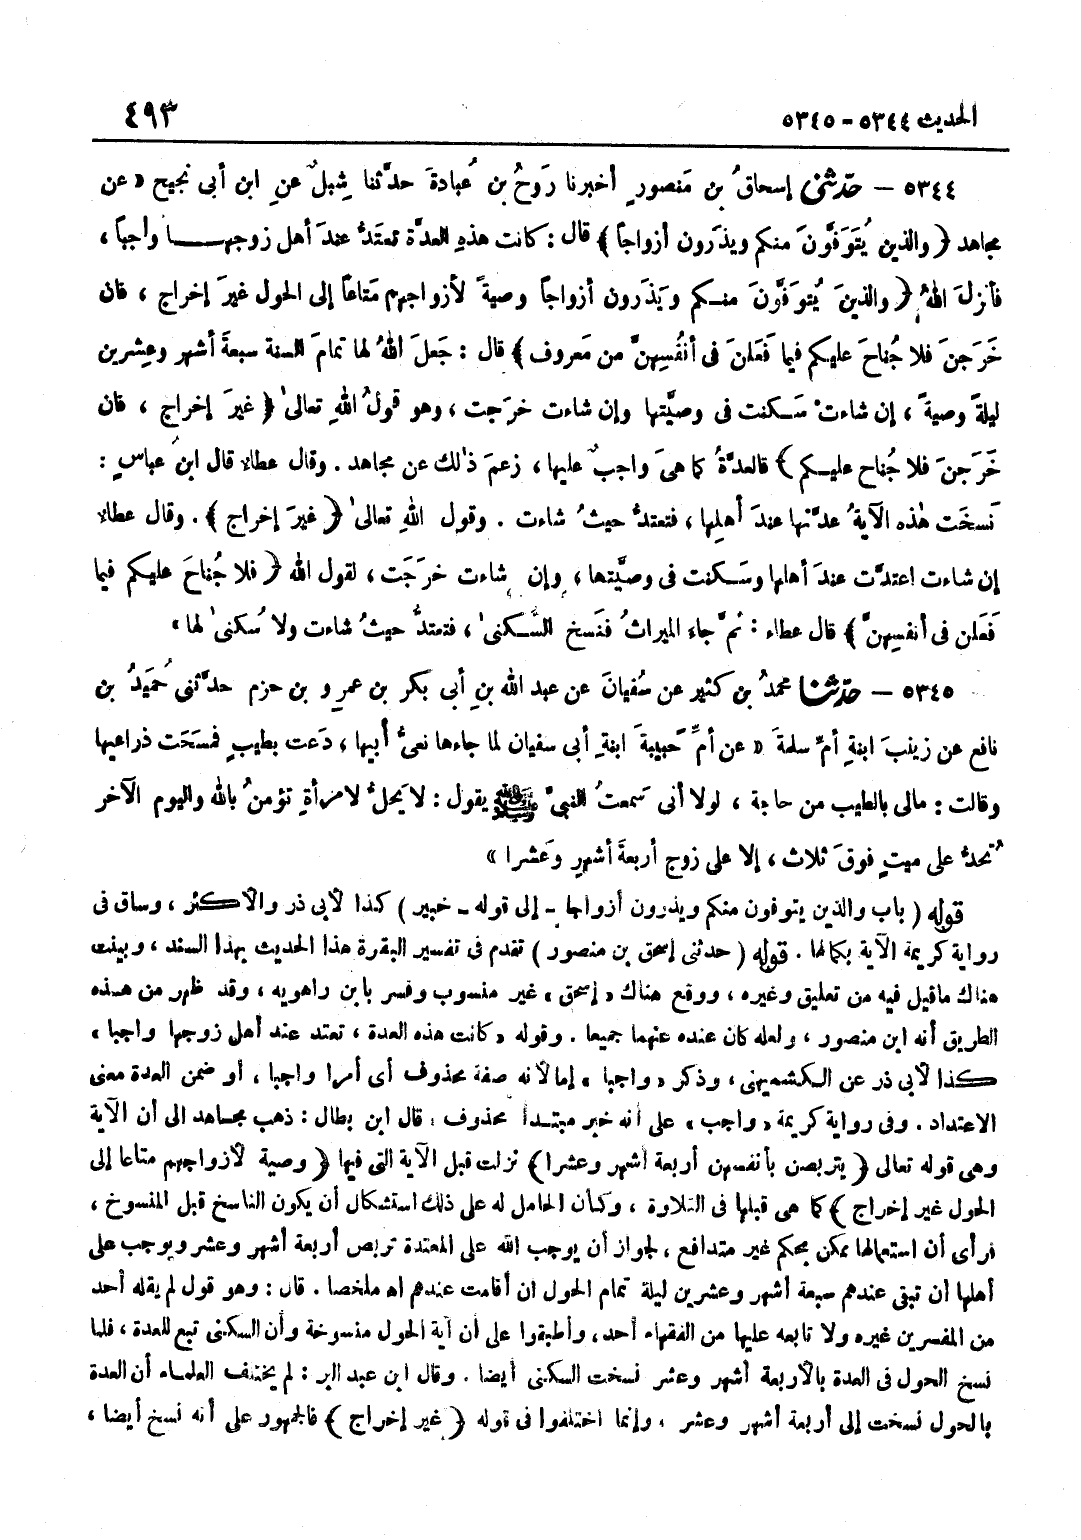 الحديث ٥٣٤٤ - ٥٣٤٥
٤٩٣
٥٣٤٤ - حدّثني إسحاقُ بن مَنصورٍ أخبرنا رَوحُ بن عُبادةَ حدَّثنا شِبلٌ عنِ ابن أبى نجيح « عن
مجاهد ( والذين يُتوَفَّونَ منكم ويذَرون أزواجاً ) قال : كانت هذهِ العدَّة تعتَدُّ عندَ أهل زوجهـا واجباً ،
فأنزلَ اللهُ ( والذينَ يُتوَفَّونَ منـكم ويَذَرون أزواجاً وصيةً لأزواجهم مَتاعاً إلى الحول غيرَ إخراج ، فان
خَرَجنَ فلا جُناحَ عليكم فيما فَعَلنَ فى أنفُسِهنَّ من مَعروف ) قال : جَعلَ اللهُ لها تمامَ السنة سبعةَ أشهر وعِشرين
ليلةً وصيةً ، إن شاءتْ سَـكنت فى وصيَّتها وإن شاءت خرَجت ، وهو قولُ اللهِ تعالى ( غيرَ إخراج ، فان
خَرَجنَ فلا جُناح عليـكم ) فالعدَّةُ كما هىَ واجبٌ عليها ، زعمَ ذٰلك عن مجاهد . وقال عطاء قال ابنُ عباسٍ :
نَسخَت هٰذه الآيةُ عدَّتها عندَ أهلِها ، فتعتدُّ حيثُ شاءت . وقول اللهِ تعالى ( غيرَ إخراج ) . وقال عطاء
إن شاءت اعتدَّت عندَ أهلها وسَـكنت فى وصيَّتها ، وإن شاءت خرَجَت ، لقول الله ( فلا جُناحَ عليكم فيما
فَعَلن فى أنفسِهنَّ ) قال عطاء : ثمَّ جاء الميراثُ فنَسخَ السُّـكنى ، فتعتدُّ حيثُ شاءت ولا سُكنى لها »
٥٣٤٥ - حدّثنا محمدُ بن كثير عن سُفيانَ عن عبد الله بنِ أبى بكر بن عمرِو بن حزم حدَّثنى حُمَيدُ بن
نافع عن زينبَ ابنةِ أمِّ سلمةَ « عن أمِّ حَبيبةَ ابنةِ أبى سفيان لما جاءها نعىُ أبيها ، دَعت بطيبٍ فمسَحَت ذراعيها
وقالت : مالى بالطيب من حاجة ، لولا أنى سَمعتُ النبىَّ ﷺ يقول : لا يَحِلُّ لامرأةٍ تؤمنُ بالله واليوم الآخر
تُحدُّ على ميتٍ فوقَ ثلاث ، إلا على زوج أربعةَ أشهرٍ وعَشرا »
قوله ( باب والذين يتوفون منكم ويذرون أزواجا - إلى قوله - خبير ) كذا لأبى ذر والأكثر ، وساق فى
رواية كريمة الآية بكمالها . قوله ( حدثنى إسحق بن منصور ) تقدم فى تفسير البقرة هذا الحديث بهذا السند ، وبينت
هناك ماقيل فيه من تعليق وغيره ، ووقع هناك « إسحق » غير منسوب وفسر بابن راهويه ، وقد ظهر من هـذه
الطريق أنه ابن منصور ، ولعله كان عنده عنهما جميعا . وقوله « كانت هذه العدة ، تعتد عند أهل زوجها واجبا »
كذا لأبى ذر عن الـكشميهنى ، وذكر « واجبا » إما لأنه صفة محذوف أى أمرا واجبا ، أو ضمن العدة معنى
الاعتداد . وفى رواية كريمة « واجب » على أنه خبر مبتـدأ محذوف . قال ابن بطال : ذهب مجاهد الى أن الآية
وهى قوله تعالى ( يتربصن بأنفسهن أربعة أشهر وعشرا ) نزلت قبل الآية التى فيها ( وصية لأزواجهم متاعا إلى
الحول غير إخراج ) كما هى قبلها فى التلاوة ، وكأن الحامل له على ذلك استشكال أن يكون الناسخ قبل المنسوخ ،
فرأى أن استعمالها ممكن بحكم غير متدافع ، لجواز أن يوجب الله على المعتدة تربص أربعة أشهر وعشر ويوجب على
أهلها أن تبقى عندهم سبعة أشهر وعشرين ليلة تمام الحول ان أقامت عندهم اه ملخصا . قال : وهو قول لم يقله أحد
من المفسرين غيره ولا تابعه عليها من الفقهاء أحد ، وأطبقوا على أن آية الحول منسوخة وأن السكنى تبع للعدة ، فلما
نسخ الحول فى العدة بالأربعة أشهر وعشر نسخت السكنى أيضا . وقال ابن عبد البر : لم يختلف العلماء أن العدة
بالحول نسخت إلى أربعة أشهر وعشر ، وإنما اختلفوا فى قوله ( غير إخراج ) فالجمهور على أنه نسخ أيضا ،